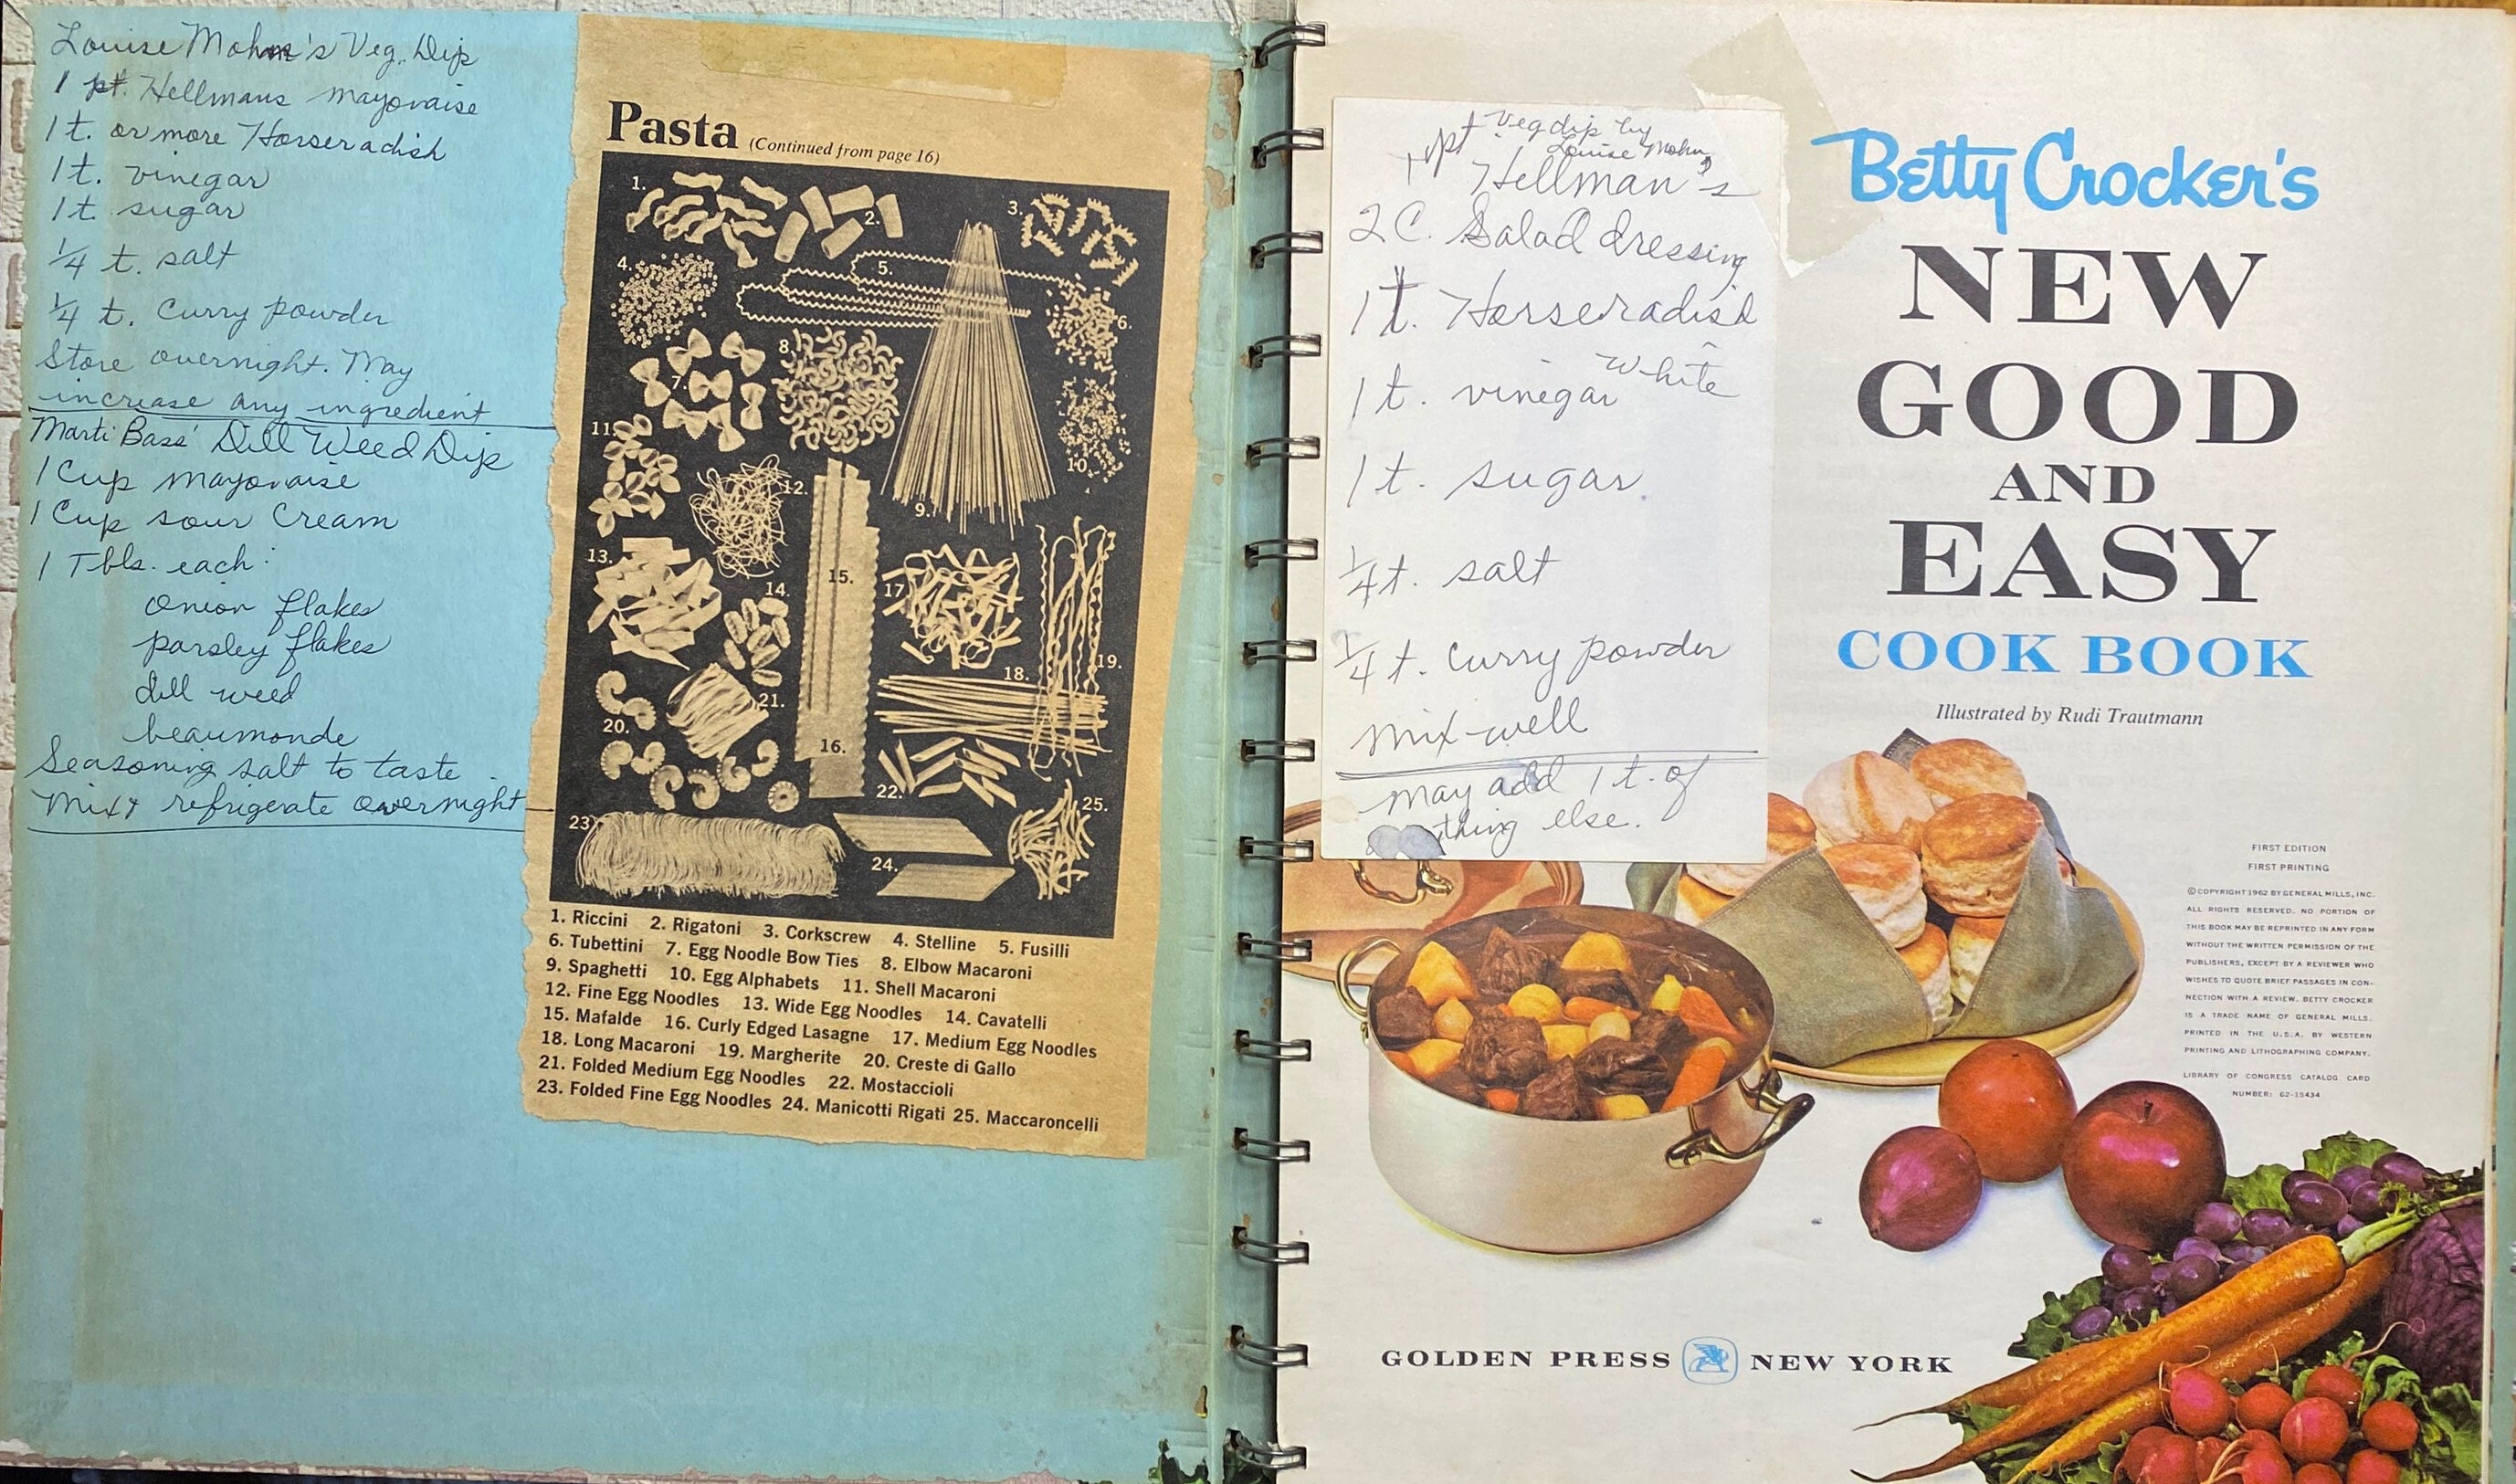 Louise Mohn's Veg. Dip
1 pt. Hellmans mayonaise
1 t. or more Horseradish
1 t. vinegar
1 t. sugar
1/4 t. salt
1/4 t. Curry powder
Store overnight. May
increase any ingredient
Marti Bass' Dill Weed Dip
1 Cup mayonaise
1 Cup sour Cream
1 Tbls. each:
onion flakes
parsley flakes
dill weed
beaumonde
Seasoning salt to taste.
Mix & refrigerate overnight
Pasta (Continued from page 16)
1.
2.
3.
4.
5.
6.
7.
8.
9.
10.
11.
12.
13.
14.
15.
16.
17
18.
19.
20.
21.
22.
23
24.
25.
1. Riccini 2. Rigatoni 3. Corkscrew 4. Stelline 5. Fusilli
6. Tubettini 7. Egg Noodle Bow Ties 8. Elbow Macaroni
9. Spaghetti 10. Egg Alphabets 11. Shell Macaroni
12. Fine Egg Noodles 13. Wide Egg Noodles 14. Cavatelli
15. Mafalde 16. Curly Edged Lasagne 17. Medium Egg Noodles
18. Long Macaroni 19. Margherite 20. Creste di Gallo
21. Folded Medium Egg Noodles 22. Mostaccioli
23. Folded Fine Egg Noodles 24. Manicotti Rigati 25. Maccaroncelli
Veg dip by
Louise Mohn
1 pt Hellman's
2 C. Salad dressing
1 t. Horseradish
White
1 t. vinegar
1 t. sugar
1/4 t. salt
1/4 t. Curry powder
Mix well
May add 1 t. of
thing else.
Betty Crocker's
NEW
GOOD
AND
EASY
COOK BOOK
Illustrated by Rudi Trautmann
FIRST EDITION
FIRST PRINTING
© COPYRIGHT 1962 BY GENERAL MILLS, INC.
ALL RIGHTS RESERVED. NO PORTION OF
THIS BOOK MAY BE REPRINTED IN ANY FORM
WITHOUT THE WRITTEN PERMISSION OF THE
PUBLISHERS, EXCEPT BY A REVIEWER WHO
WISHES TO QUOTE BRIEF PASSAGES IN CON-
NECTION WITH A REVIEW. BETTY CROCKER
IS A TRADE NAME OF GENERAL MILLS.
PRINTED IN THE U.S.A. BY WESTERN
PRINTING AND LITHOGRAPHING COMPANY.
LIBRARY OF CONGRESS CATALOG CARD
NUMBER: 62-15434
GOLDEN PRESS NEW YORK